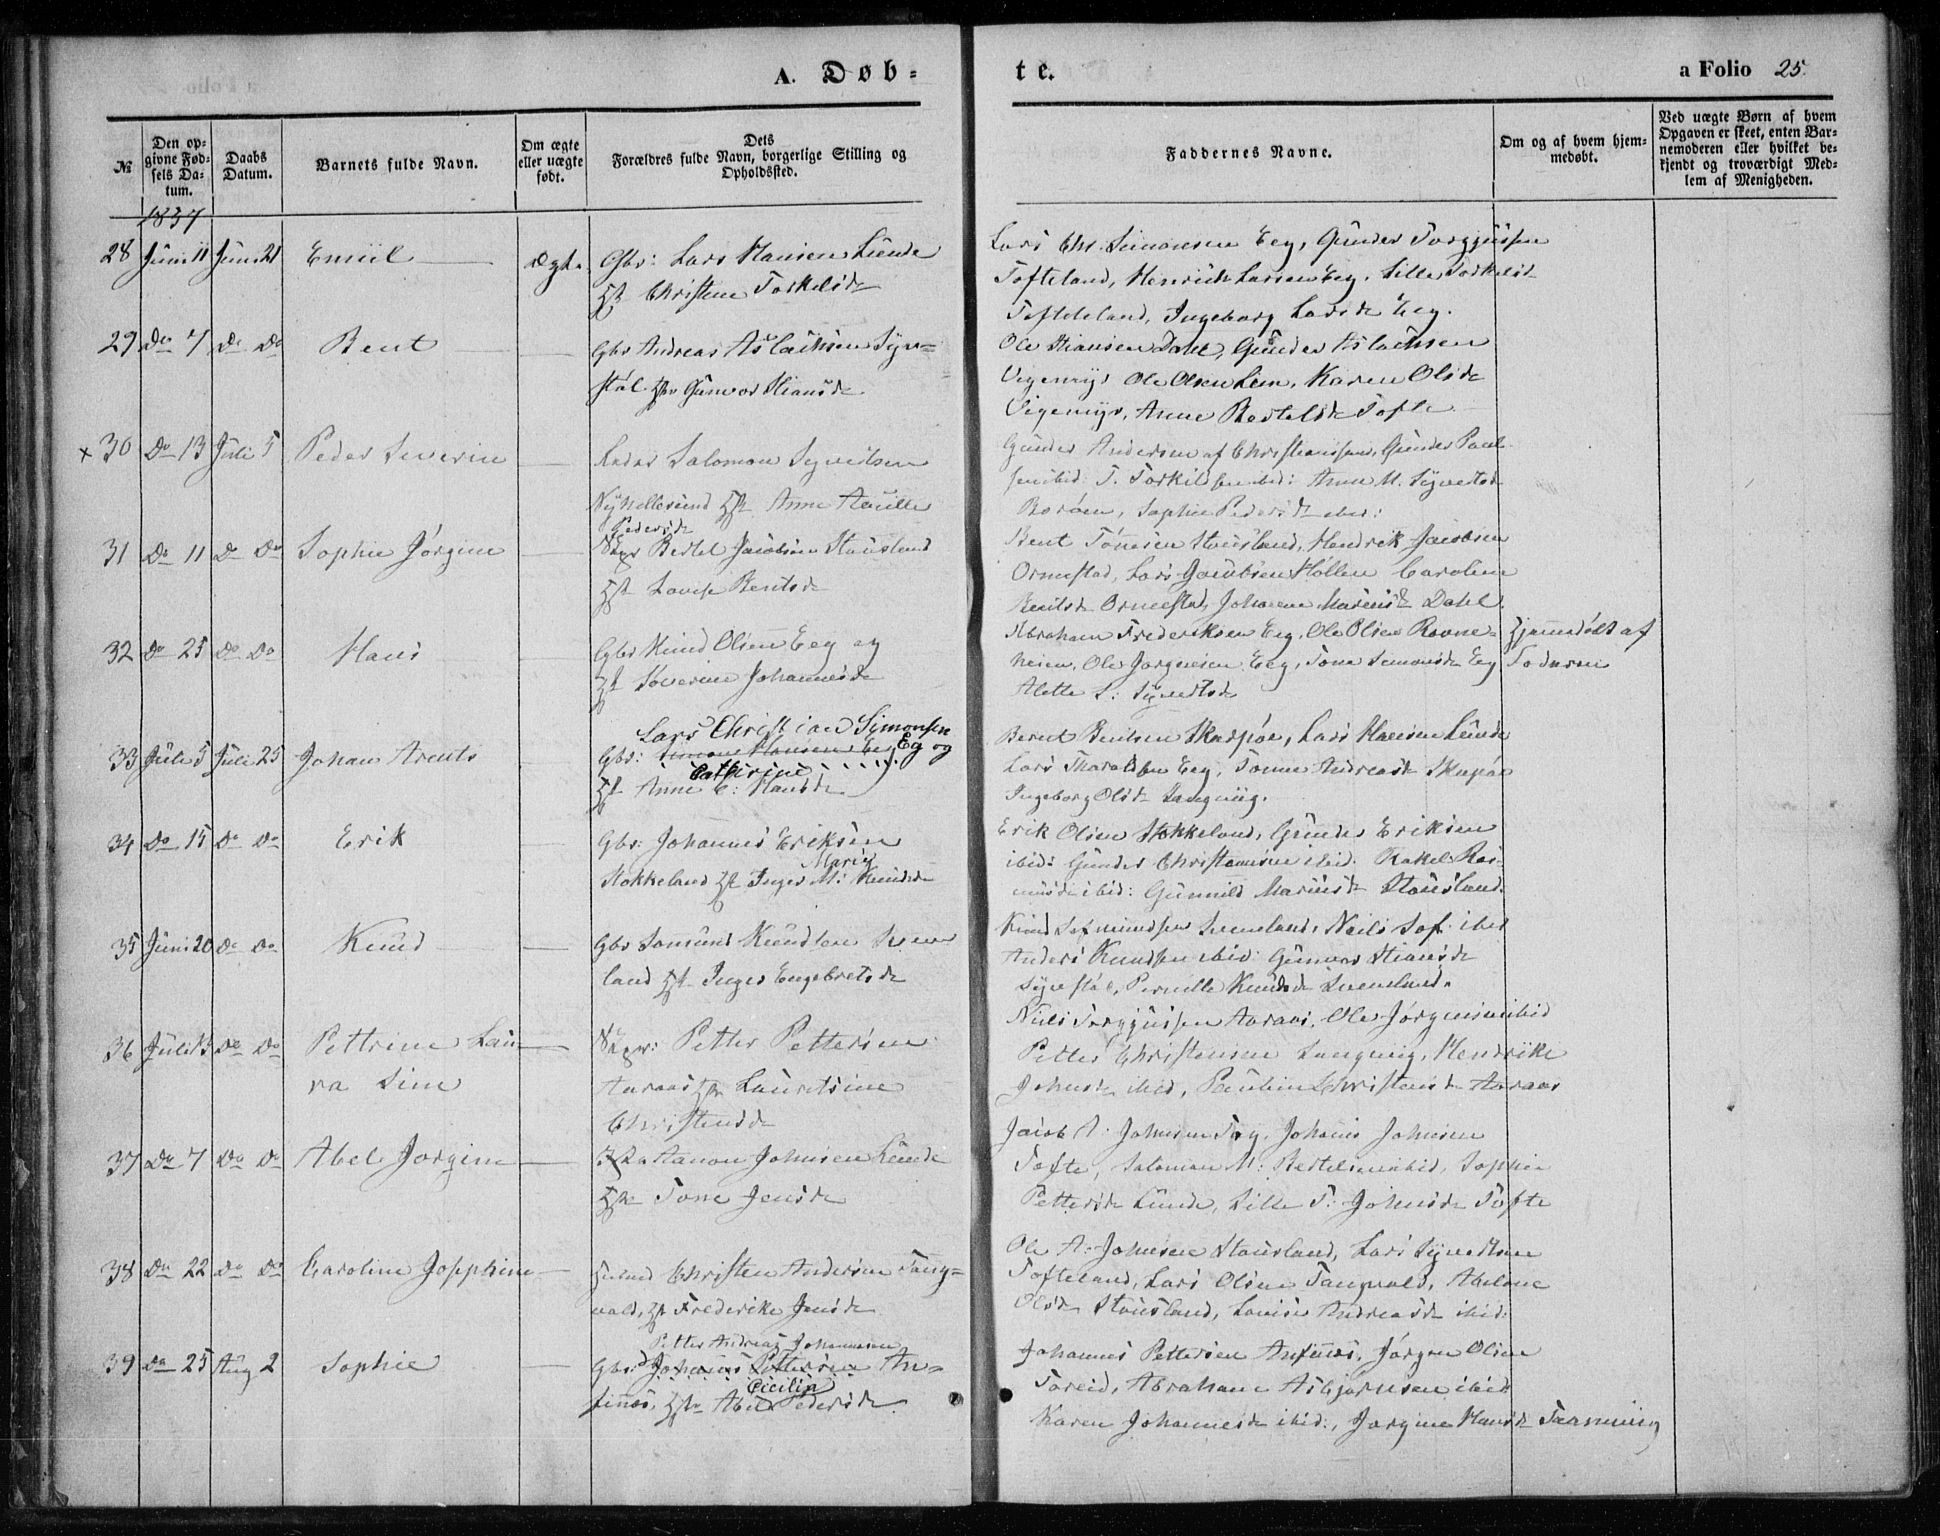 A. Døb=
te.
a Folio 25.
№
Den op-
givne Fød-
sels Da-
tum.
Daabs
Datum.
Barnets fulde Navn.
Om ægte
eller uægte
født.
Dets
Forældres fulde Navn, borgerlige Stilling og
Opholdssted.
Faddernes Navne.
Om og af hvem hjem-
medøbt.
Ved uægte Børn af hvem
Opgaven er skeet, enten Bar-
nemoderen eller hvilket be-
kjendt og troværdigt Med-
lem af Menigheden.
1837
28 Juni 11 Juni 21 Emiil ægte Gbr: Lars Hansen Lunde
Hst Christine Torkelsd
Lars Chr. Simonsen Eeg, Gunder Torgjussen
Tofteland, Henrich Larsen Eeg, Sille Torkelsd
Tofteland, Ingeborg Larsd Eeg.
29 Do 7 Do Do Bent Gbr Andreas Aslachsen Syre=
støl Hst Gunvor Stiansd
Ole Stiansen Dahl, Gunder Aslachsen
Vigemyr Ole Olsen Lem, Karen Olsd
Vigemyr, Anne Bertelsd Tofte
x 30 Do 13 Juli 5 Peder Severin Salomon Syvertsen
Ny Hellesund Hst Anne
Pedersd
Gunder Andersen af Christianssand, Gunder Paul
sen ibid: T. Torkildsen ibid: Anne M. Syvertsd
Borøen, Sophie Pedersd ibid:
31 Do 11 Do Do Sophie Jørgine Bertel Jacobsen Stausland
Hst Lovise Bentsd
Bent Tønnesen Stausland, Hendrik Jacobsen
Ormestad, Lars Jacobsen Høllen Caroline
Bentsd Ormestad, Johanne Mariusd Dahl
32 Do 25 Do Do Hans Gbr Knud Olsen Eeg og
Hst Severine Johannesd
Abraham Frederiksen Eeg, Ole Olsen Ravne=
heien, Ole Jørgensen Eeg, Tone Simonsd Eeg
Alette S: Syvertsd
Hjemmedøbt af
33 Juli 5 Juli 25 Johan Arents Lars Christian Simonsen
Gbr: Simon Hansen Eeg Eg og
Cathrine
Hst Anne C: Hansd
Berent Bentsen Skarpøe, Lars Hansen Lunde
Lars Tharaldsen Eeg, Tonne Andreasd Skarpøe
Ingeborg Olsd Langevig.
34 Do 15 Do Do Erik Gbr: Johannes Eriksen
Marie
Stokkeland Hst Inger M: Knudsd
Erik Olsen Stokkeland, Gunder Eriksen
ibid: Gunder Christensen ibid: Rakel Ras
musd ibid: Gunnild Mariusd Stausland
35 Juni 20 Do Do Knud Gbr Knudsen
land Hst Inger Engebretsd
Knud
Anders Knudsen ibid: Gunvor Stiansd
Syrestøl, Pernille Knudsd
36 Juli 13 Do Do Pettrine Lau
ra Sine
Petter Pettersen
Aaraas Hst Lauretsine
Christensd
Niels Torgjussen Aaraas, Ole Jørgensen ibid
Petter Christensen Langevig, Hendrikke
Johnsd ibid, Pauline Christensd Aaraas
37 Do 7 Do Do Abel Jørgine Aanon Johnsen Lunde
Hst Tone Jensd
Jacob A: Johnsen Johans Johnsen
Tofte, Salomon M: Bertelsen ibid, Sophie
Pettersd Lunde, Sille T: Johnsd Tofte
38 Do 22 Do Do Caroline Josephine Christen Andersen Tang=
vald, Hst Frederike Jensd
Ole A: Johnsen Stausland, Lars Syvertsen
Tofteland, Lars Olsen Tangvald, Abelone
Olsd Stausland, Lovise Andreasd ibid:
39 Do 25 Aug 2 Sophie Petter Andreas Johannesen
Gbr: Johannes Pettersen An=
Cecilia
finnes, Hst Abel Pedersd
Johannes Pettersen Anfinnes, Jørgen Olsen
Toreid, Abraham Asbjørnsen ibid
Karen Johannesd ibid:, Jørgine Hansd